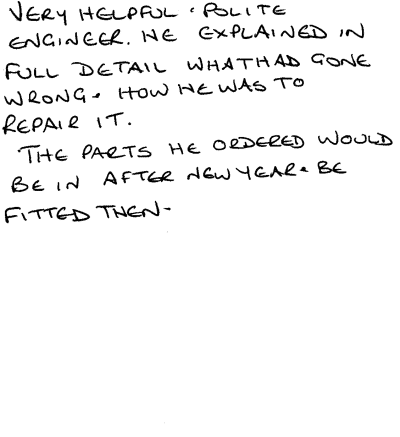 VERY HELPFUL & POLITE
ENGINEER. HE EXPLAINED IN
FULL DETAIL WHAT HAD GONE
WRONG & HOW HE WAS TO
REPAIR IT.
THE PARTS HE ORDERED WOULD
BE IN AFTER NEW YEAR & BE
FITTED THEN-